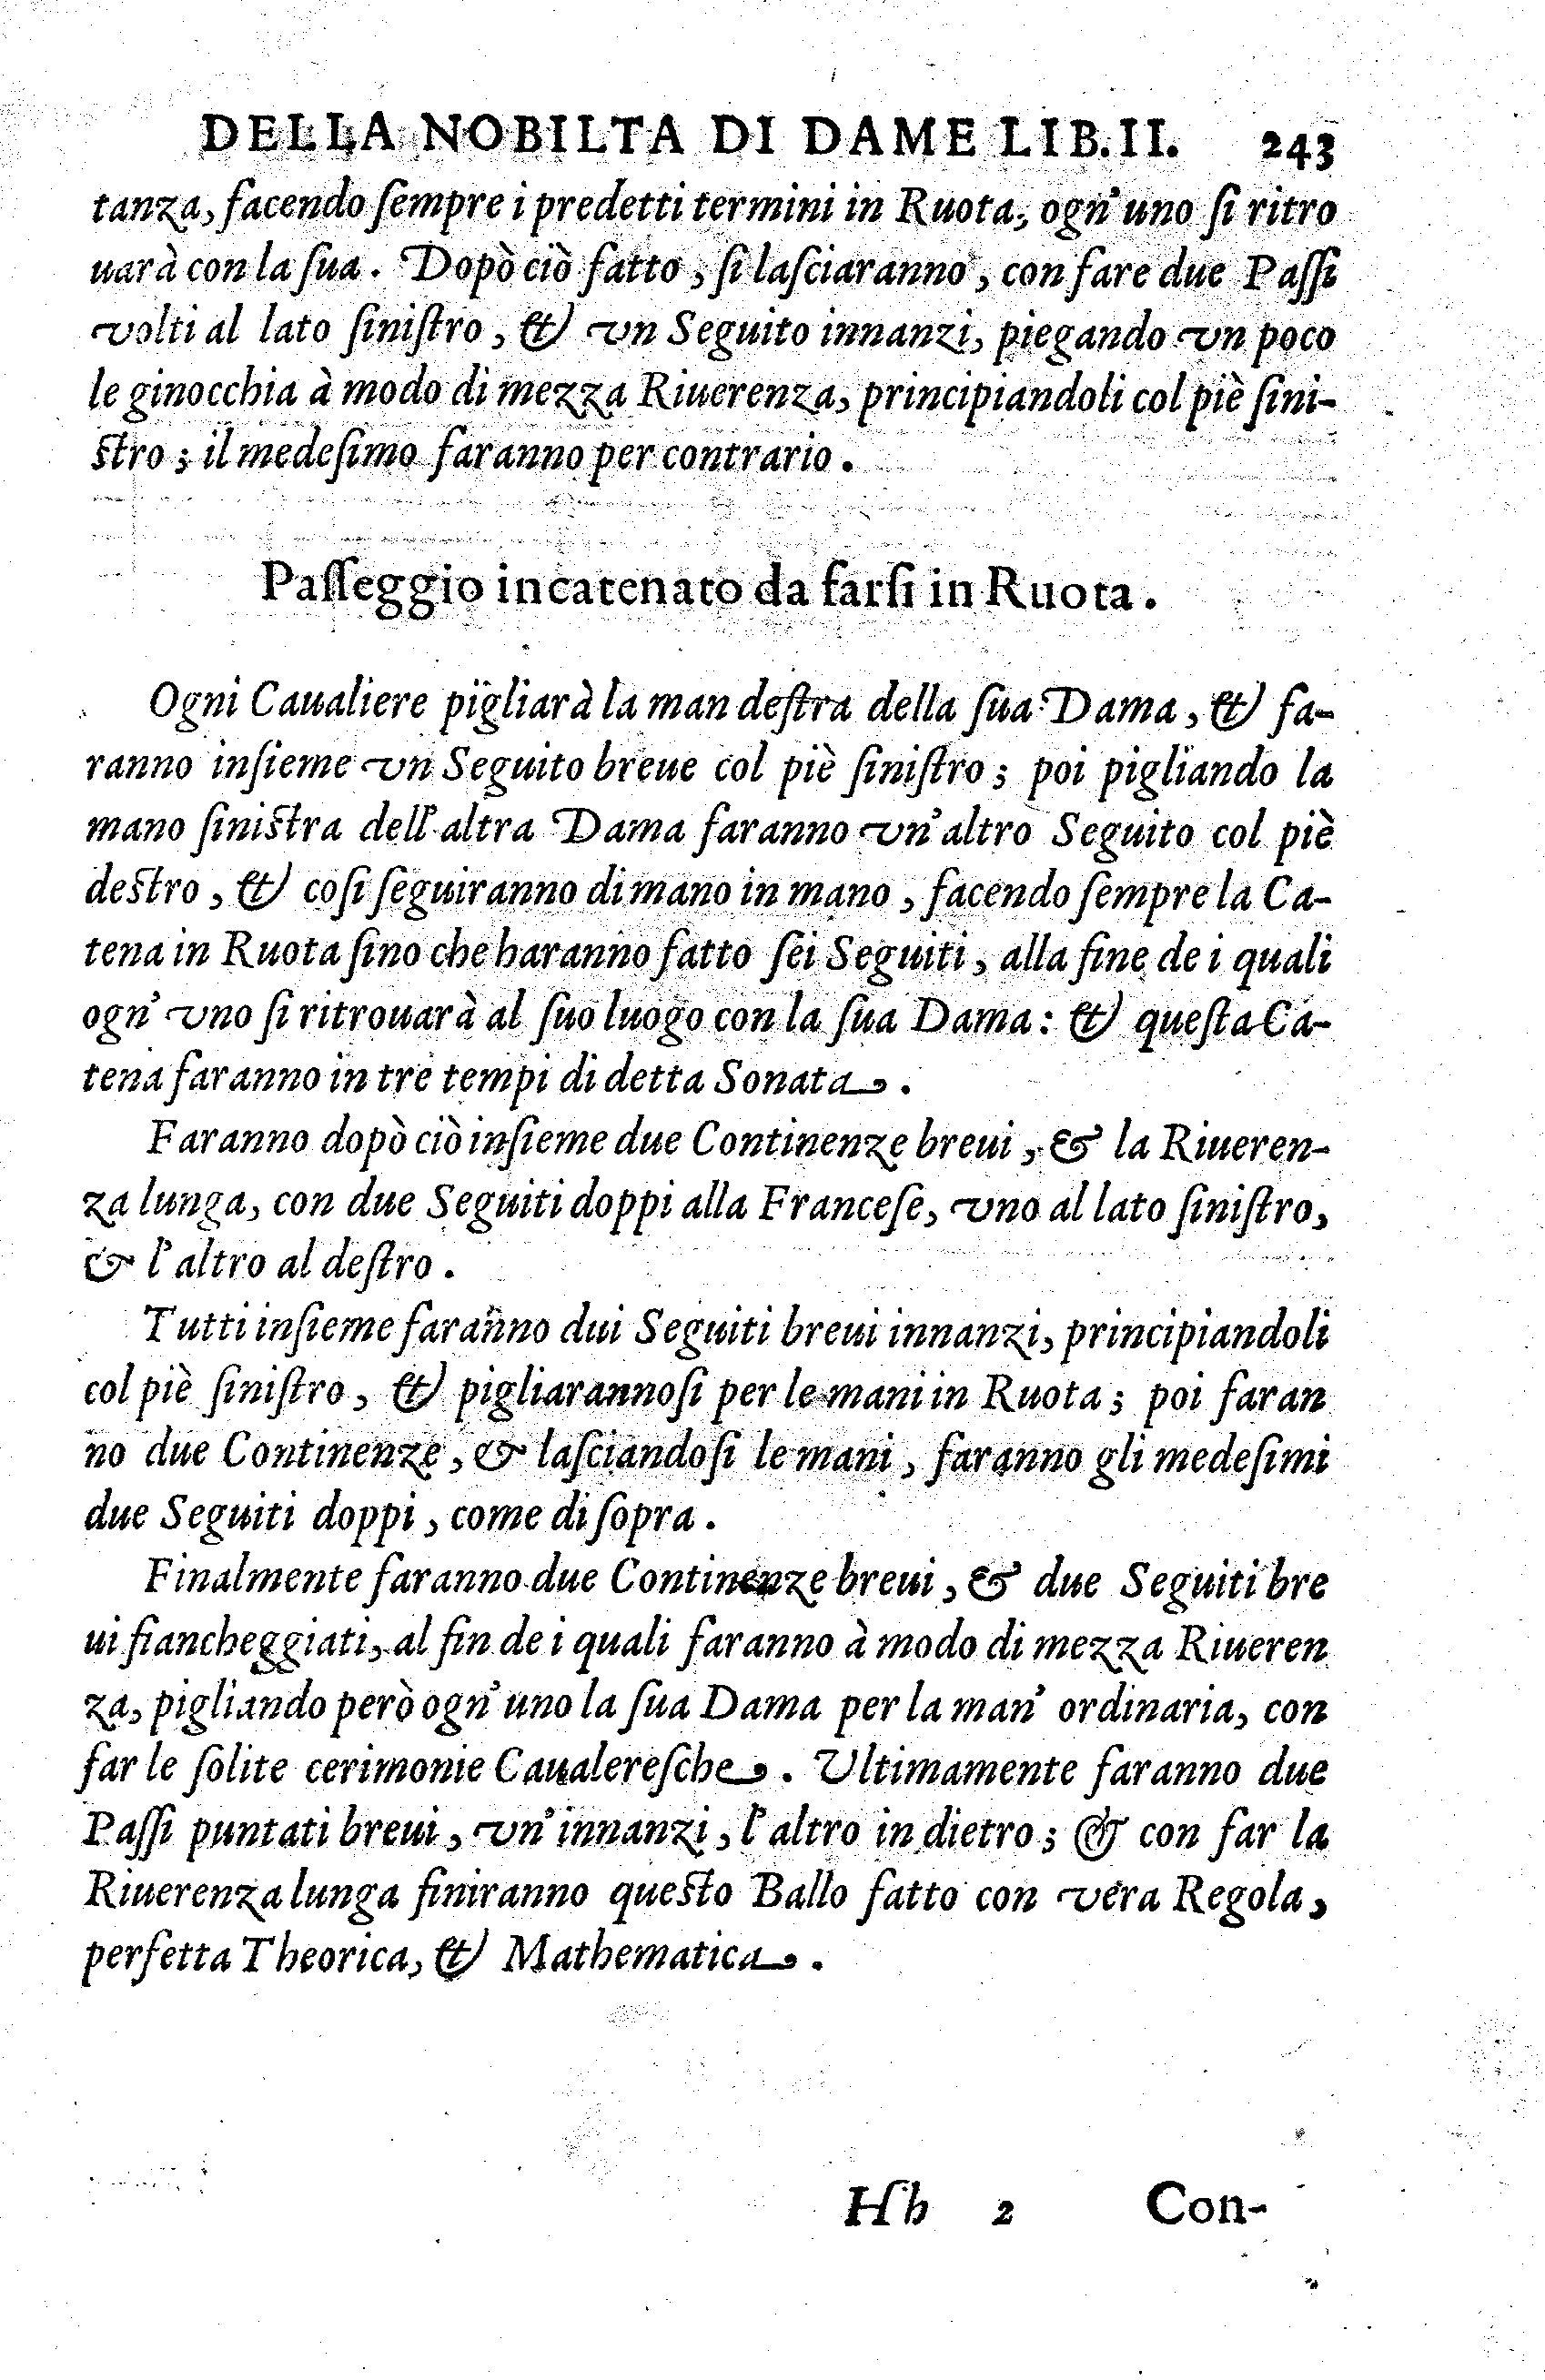 DELLA NOBILTA DI DAME LIB. II. 243
tanza, facendo ſempre i predetti termini in Ruota, ogn'uno ſi ritro
uarà con la ſua. Dopò ciò fatto, ſi laſciaranno, con fare due Paſſi
volti al lato ſiniſtro, & vn Seguito innanzi, piegando vn poco
le ginocchia à modo di mezza Riuerenza, principiandoli col piè ſini-
ſtro; il medeſimo faranno per contrario.
Paſſeggio incatenato da farſi in Ruota.
Ogni Caualiere pigliarà la man deſtra della ſua Dama, & fa-
ranno inſieme vn Seguito breue col piè ſiniſtro; poi pigliando la
mano ſiniſtra dell'altra Dama faranno vn'altro Seguito col piè
deſtro, & coſi ſeguiranno di mano in mano, facendo ſempre la Ca-
tena in Ruota ſino che haranno fatto ſei Seguiti, alla fine de i quali
ogn'vno ſi ritrouarà al ſuo luogo con la ſua Dama: & queſta Ca-
tena faranno in tre tempi di detta Sonata.
Faranno dopò ciò inſieme due Continenze breui, & la Riueren-
za lunga, con due Seguiti doppi alla Franceſe, vno al lato ſiniſtro,
& l'altro al deſtro.
Tutti inſieme faranno dui Seguiti breui innanzi, principiandoli
col piè ſiniſtro, & pigliarannoſi per le mani in Ruota; poi faran
no due Continenze, & laſciandoſi le mani, faranno gli medeſimi
due Seguiti doppi, come di ſopra.
Finalmente faranno due Continenze breui, & due Seguiti bre
ui fiancheggiati, al fin de i quali faranno à modo di mezza Riueren
za, pigliando però ogn'uno la ſua Dama per la man' ordinaria, con
far le ſolite cerimonie Caualereſche. Ultimamente faranno due
Paſſi puntati breui, vn'innanzi, l'altro in dietro; & con far la
Riuerenza lunga finiranno queſto Ballo fatto con vera Regola,
perfetta Theorica, & Mathematica.
Hh 2 Con-